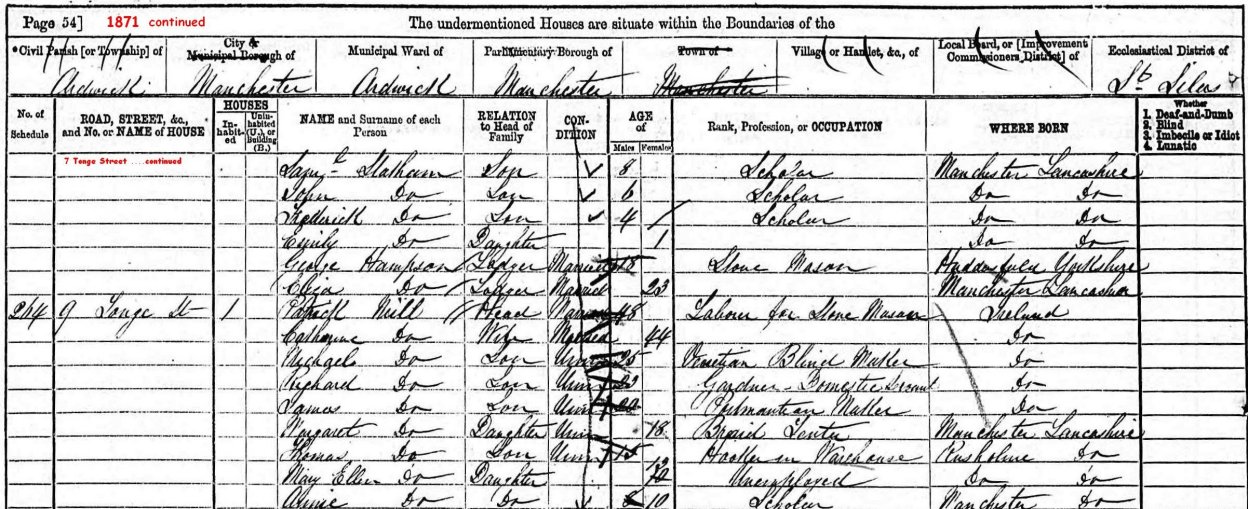 Page 54] 1871 continued The undermentioned Houses are situate within the Boundaries of the
Civil Parish [or Township] of City & Municipal Borough of Municipal Ward of Parliamentary Borough of Town of Village or Hamlet, &c., of Local Board, or [Improvement Commissioners District] of Ecclesiastical District of
Ardwick Manchester Ardwick Manchester Manchester St Silas
No. of Schedule ROAD, STREET, &c., and No. or NAME of HOUSE HOUSES Inhabited Uninhabited (U.), or Building (B.) NAME and Surname of each Person RELATION to Head of Family CONDITION AGE of Males Females Rank, Profession, or OCCUPATION WHERE BORN Whether 1. Deaf-and-Dumb 2. Blind 3. Imbecile or Idiot 4. Lunatic
7 Tonge Street ....continued
Saml Statham Son 8 Scholar Manchester Lancashire
John Do Son 6 Scholar Do Do
Frederick Do Son 4 Scholar Do Do
Emily Do Daughter 1 Do Do
George Hampson Lodger Married 18 Stone Mason Yorkshire
Eliza Do Lodger Married 23 Manchester Lancashire
264 9 Tonge St 1 Patrick Neill Head Married 48 Laborer for Stone Mason Ireland
Catherine Do Wife Married 44 Do
Michael Do Son Unm 25 Venetian Blind Maker Do
Richard Do Son Unm Gardner - Domestic Servant Do
James Do Son Unm Portmantian Maker Do
Margaret Do Daughter Unm 18 Braid Manchester Lancashire
Thomas Do Son Unm 15 Hooker in Warehouse Rusholme Do
Mary Ellen Do Daughter 12 Unemployed Do Do
Annie Do Do 10 Scholar Manchester Do